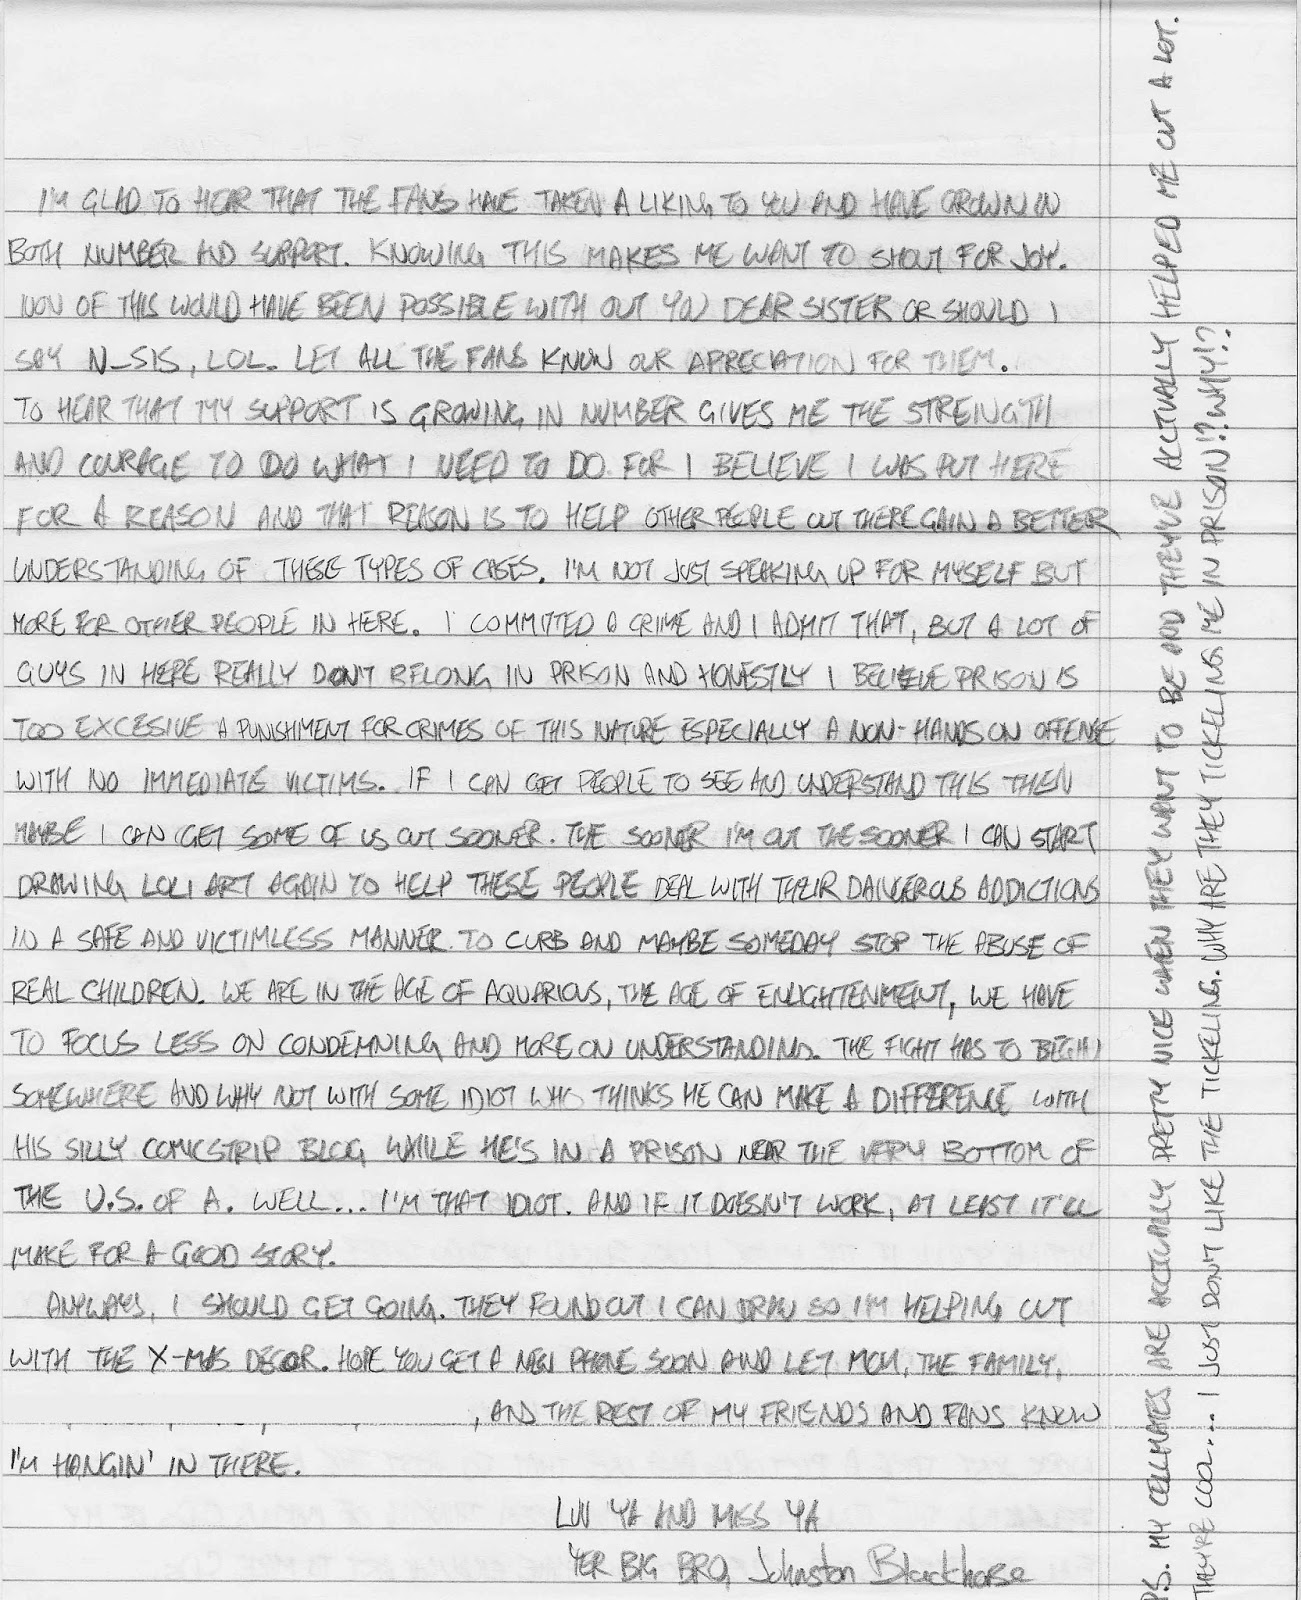 I'M GLAD TO HEAR THAT THE FANS HAVE TAKEN A LIKING TO YOU AND HAVE GROWN IN
BOTH NUMBER AND SUPPORT. KNOWING THIS MAKES ME WANT TO SHOUT FOR JOY.
NON OF THIS WOULD HAVE BEEN POSSIBLE WITH OUT YOU DEAR SISTER OR SHOULD I
SAY N_SIS, LOL. LET ALL THE FANS KNOW OUR APRECIATION FOR THEM.
TO HEAR THAT MY SUPPORT IS GROWING IN NUMBER GIVES ME THE STREINGTH
AND COURAGE TO DO WHAT I NEED TO DO. FOR I BELIEVE I WAS PUT HERE
FOR A REASON AND THAT REASON IS TO HELP OTHER PEOPLE OUT THERE GAIN A BETTER
UNDERSTANDING OF THESE TYPES OF CASES. I'M NOT JUST SPEAKING UP FOR MYSELF BUT
MORE FOR OTHER PEOPLE IN HERE. I COMMITTED A CRIME AND I ADMIT THAT, BUT A LOT OF
GUYS IN HERE REALLY DON'T BELONG IN PRISON AND HONESTLY I BELIEVE PRISON IS
TOO EXCESIVE A PUNISHMENT FOR CRIMES OF THIS NATURE ESPECIALLY A NON-HANDS ON OFFENSE
WITH NO IMMEDIATE VICTIMS. IF I CAN GET PEOPLE TO SEE AND UNDERSTAND THIS THEN
MAYBE I CAN GET SOME OF US OUT SOONER. THE SOONER I'M OUT THE SOONER I CAN START
DRAWING LOLI ART AGAIN TO HELP THESE PEOPLE DEAL WITH THEIR DANGEROUS ADDICTIONS
IN A SAFE AND VICTIMLESS MANNER. TO CURB AND MAYBE SOMEDAY STOP THE ABUSE OF
REAL CHILDREN. WE ARE IN THE AGE OF AQUARIOUS, THE AGE OF ENLIGHTENMENT, WE HAVE
TO FOCUS LESS ON CONDEMNING AND MORE ON UNDERSTANDING. THE FIGHT HAS TO BEGIN
SOMEWHERE AND WHY NOT WITH SOME IDIOT WHO THINKS HE CAN MAKE A DIFFERENCE WITH
HIS SILLY COMICSTRIP BLOG WHILE HE'S IN A PRISON NEAR THE VERY BOTTOM OF
THE U.S. OF A. WELL... I'M THAT IDIOT. AND IF IT DOESN'T WORK, AT LEAST IT'LL
MAKE FOR A GOOD STORY.
ANYWAYS, I SHOULD GET GOING. THEY FOUND OUT I CAN DRAW SO I'M HELPING OUT
WITH THE X-MAS DECOR. HOPE YOU GET A NEW PHONE SOON AND LET MOM, THE FAMILY,
, AND THE REST OF MY FRIENDS AND FANS KNOW
I'M HANGIN' IN THERE.
LUV YA AND MISS YA
YER BIG BRO, Johnston Blackhorse
P.S. MY CELLMATES ARE ACCTUALLY PRETTY NICE WHEN THEY WANT TO BE AND THEYVE ACCTUALLY HELPED ME OUT A LOT.
THEY'RE COOL.... I JUST DON'T LIKE THE TICKELING. WHY ARE THEY TICKELING ME IN PRISON!? WHY!?